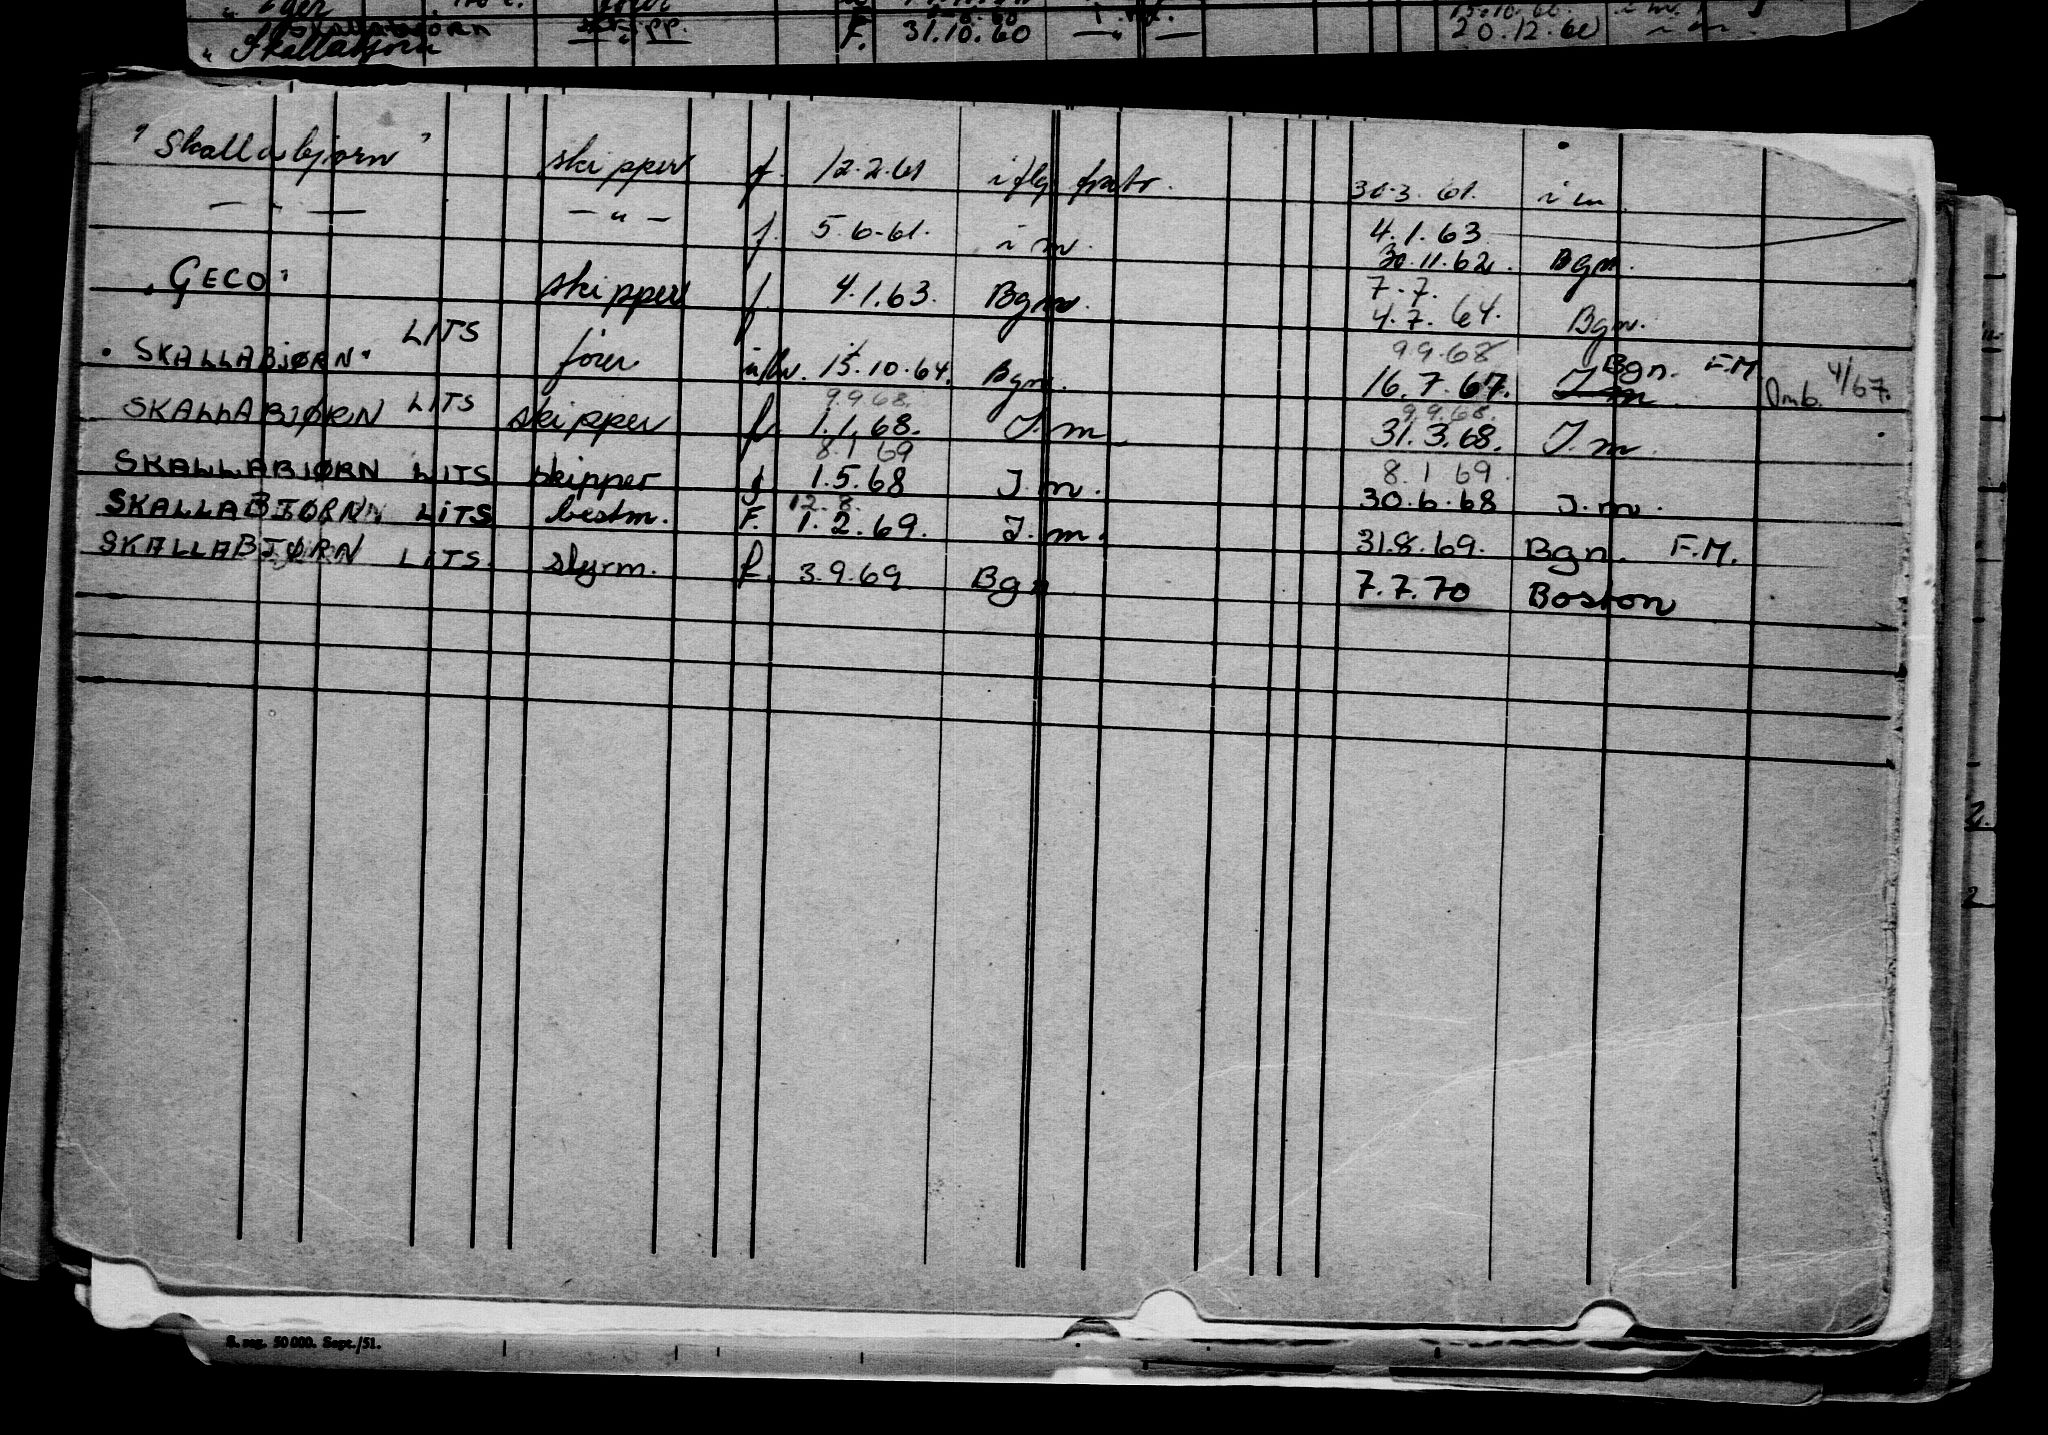 " Skallabjørn skipp. F. 31.10.60 — " — 20.12.60 i m.
" Skallabjørn " skipper f. 12.2.61 iflg fratr. 30.3.61. i m.
— " — — " — f. 5.6.61. i m. 4.1.63
30.11.62. Bgn.
" GECO " skipper f 4.1.63. Bgn. 7.7.
4.7.64. Bgn.
" SKALLABJØRN " LITS fører 15.10.64. Bgn. 9 9.68 Bgn. F.M.
16.7.67. I m Omb. 4/67.
SKALLABJØRN LITS skipper f. 9.9.68. 1.1.68. I. m 9.9.68. 31.3.68. I. m.
SKALLABJØRN LITS skipper f 8.1 69 1.5.68 I. m. 8.1 69. 30.6.68 I. m.
SKALLABJØRN LITS bestm. F. 12.8. 1.2.69. I. m. 31.8.69. Bgn. F.M.
SKALLABJØRN LITS styrm. f. 3.9.69 Bgn 7.7.70 Boston
2.
2
S. reg. 50 000. Sept./51.